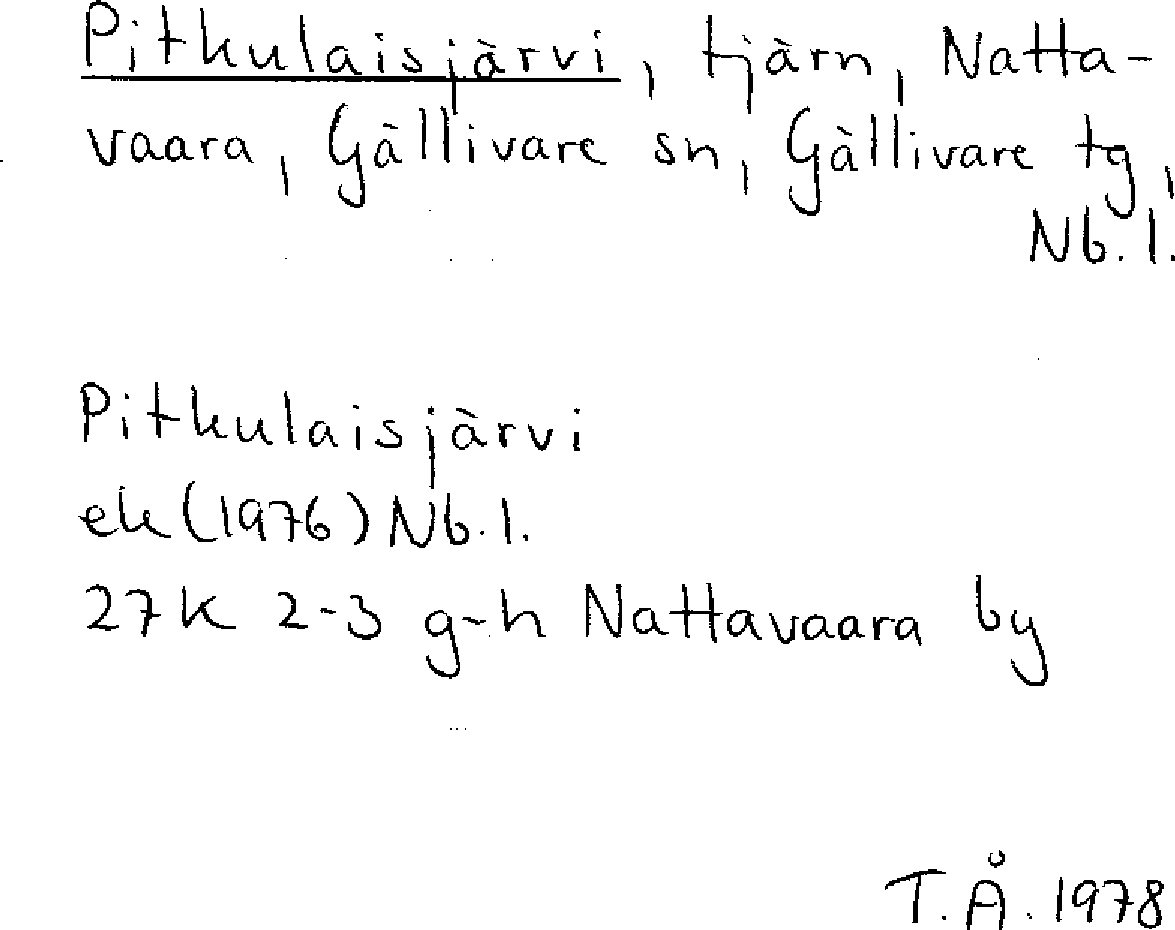 Pitkulaisjärvi, tjärn, Natta-
vaara, Gällivare sn, Gällivare tg,
Nb. l.
Pitkulaisjärvi
ek (1976) Nb. l.
27K 2-3 g-h Nattavaara by
T.Å. 1978